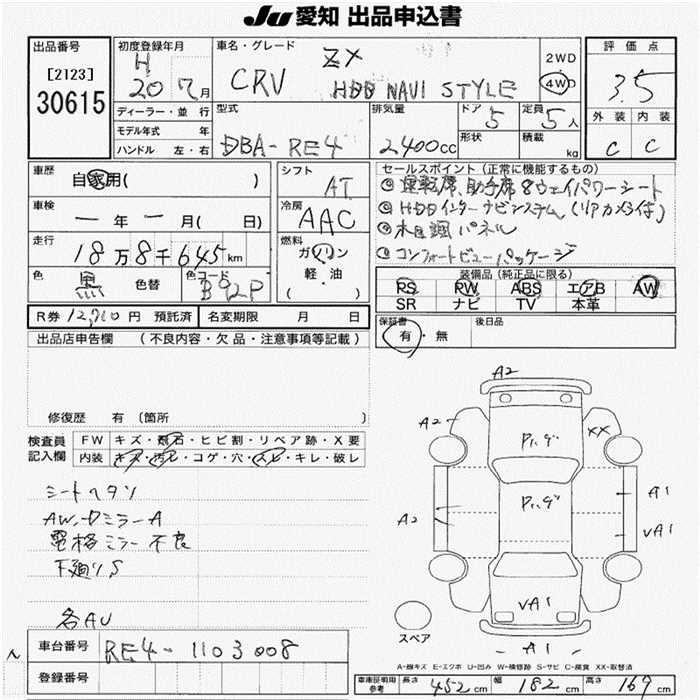 Ju 愛知 出品申込書
出品番号
[2123]
30615
初度登録年月
H
20 年 7 月
ディーラー・並 行
モデル年式 年
ハンドル 左・右
車名・グレード
CRV
ZX
HDD NAVI STYLE
2WD
4WD
型式
DBA-RE4
排気量
2400cc
ドア
5
形状
定員
5人
積載
kg
評 価 点
3.5
外 装 内 装
C C
車歴
自家用( )
車検
一 年 一 月( 日)
走行
18 万 8 千 645 km
色
黒
色替
色コード
B92P
シフト
AT
冷房
AAC
燃料
ガソリン
軽・油
( )
セールスポイント (正常に機能するもの)
① 運転席、助手席 8ウェイパワーシート
② HDDインターナビシステム(リアカメラ付)
③ 木目調パネル
④ コンフォートビューパッケージ
装備品 (純正品に限る)
PS PW ABS エアB AW
SR ナビ TV 本革
R券 12,710 円 預託済
名変期限 月 日
保証書
有・無
後日品
出品店申告欄 (不良内容・欠品・注意事項等記載)
修復歴 有 〔箇所 〕
検査員
記入欄
FW キズ・飛石・ヒビ割・リペア跡・X要
内装 キズ・汚レ・コゲ・穴・スレ・キレ・破レ
シートヘタリ
AW、DミラーA
電格ミラー不良
下廻りS
各AU
A2
A2
XX
Pハゲ
Pハゲ
A2
A1
VA1
VA1
A1
スペア
A-線キズ E-エクボ U-凹み W-補修跡 S-サビ C-腐食 XX-取替済
車台番号
RE4-1103008
登録番号
車庫証明用
参考
長さ 452 cm
幅 182 cm
高さ 169 cm